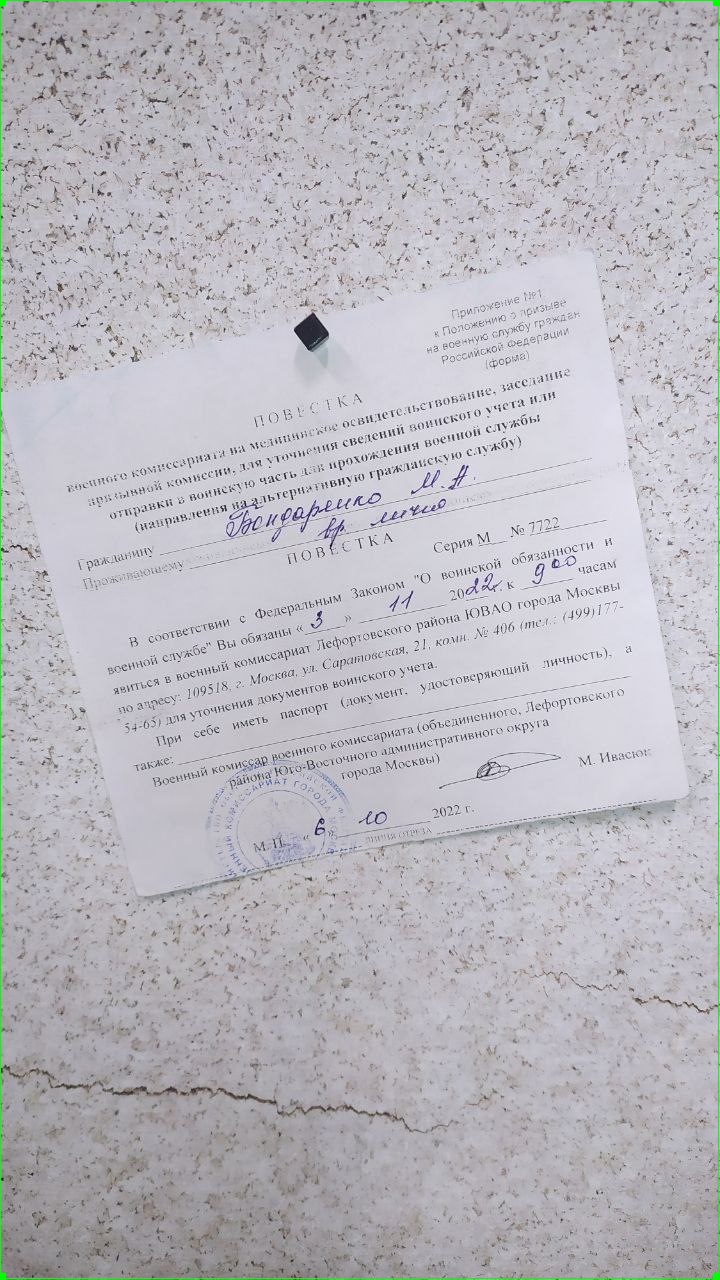 Приложение №1
к Положению о призыве
на военную службу граждан
Российской Федерации
(форма)
ПОВЕСТКА
военного комиссариата на медицинское освидетельствование, заседание
призывной комиссии, для уточнения сведений воинского учета или
отправки в воинскую часть для прохождения военной службы
(направления на альтернативную гражданскую службу)
Гражданину Бондаренко М. А.
Проживающему вр. лично
ПОВЕСТКА
Серия М № 7722
В соответствии с Федеральным Законом "О воинской обязанности и
военной службе" Вы обязаны « 3 » 11 2022г. к 9 00 часам
явиться в военный комиссариат Лефортовского района ЮВАО города Москвы
по адресу: 109518, г. Москва, ул. Саратовская, 21, комн. № 406 (тел.: (499)177-
54-65) для уточнения документов воинского учета.
При себе иметь паспорт (документ, удостоверяющий личность), а
также:
Военный комиссар военного комиссариата (объединенного, Лефортовского
района Юго-Восточного административного округа
города Москвы)
М. Ивасюк
М. П. « 6 » 10 2022 г.
ЛИНИЯ ОТРЕЗА
ВОЕННЫЙ КОМИССАРИАТ ГОРОДА